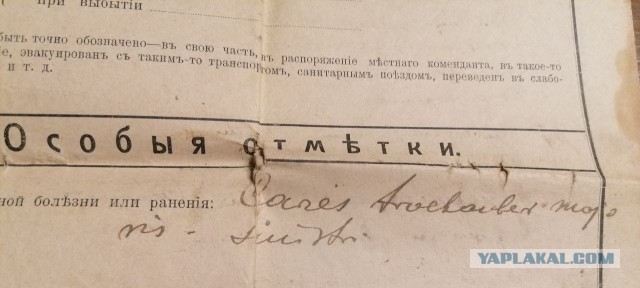 при выбытіи
быть точно обозначено—въ свою часть, въ распоряженіе мѣстнаго коменданта, въ такое-то
іе, эвакуированъ съ такимъ-то транспортомъ, санитарнымъ поѣздомъ, переведенъ въ слабо-
и т. д.
Особыя отмѣтки.
ной болѣзни или раненія: Caries trochanter majo
ris - sinistri
YAPLAKAL.COM